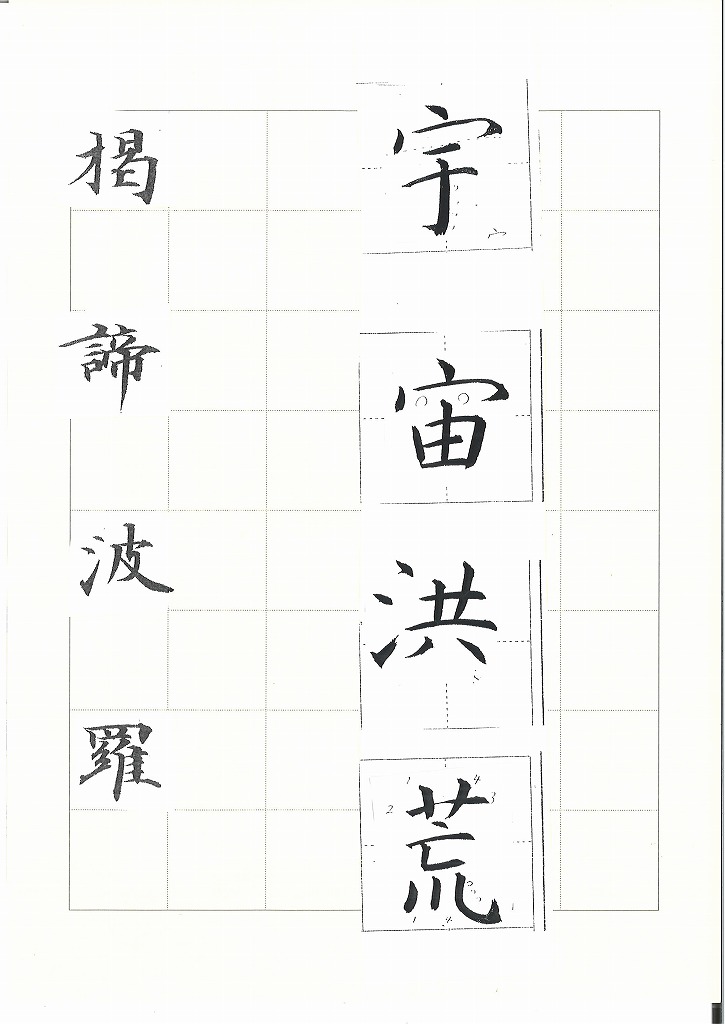 宇宙洪荒
揭諦波羅